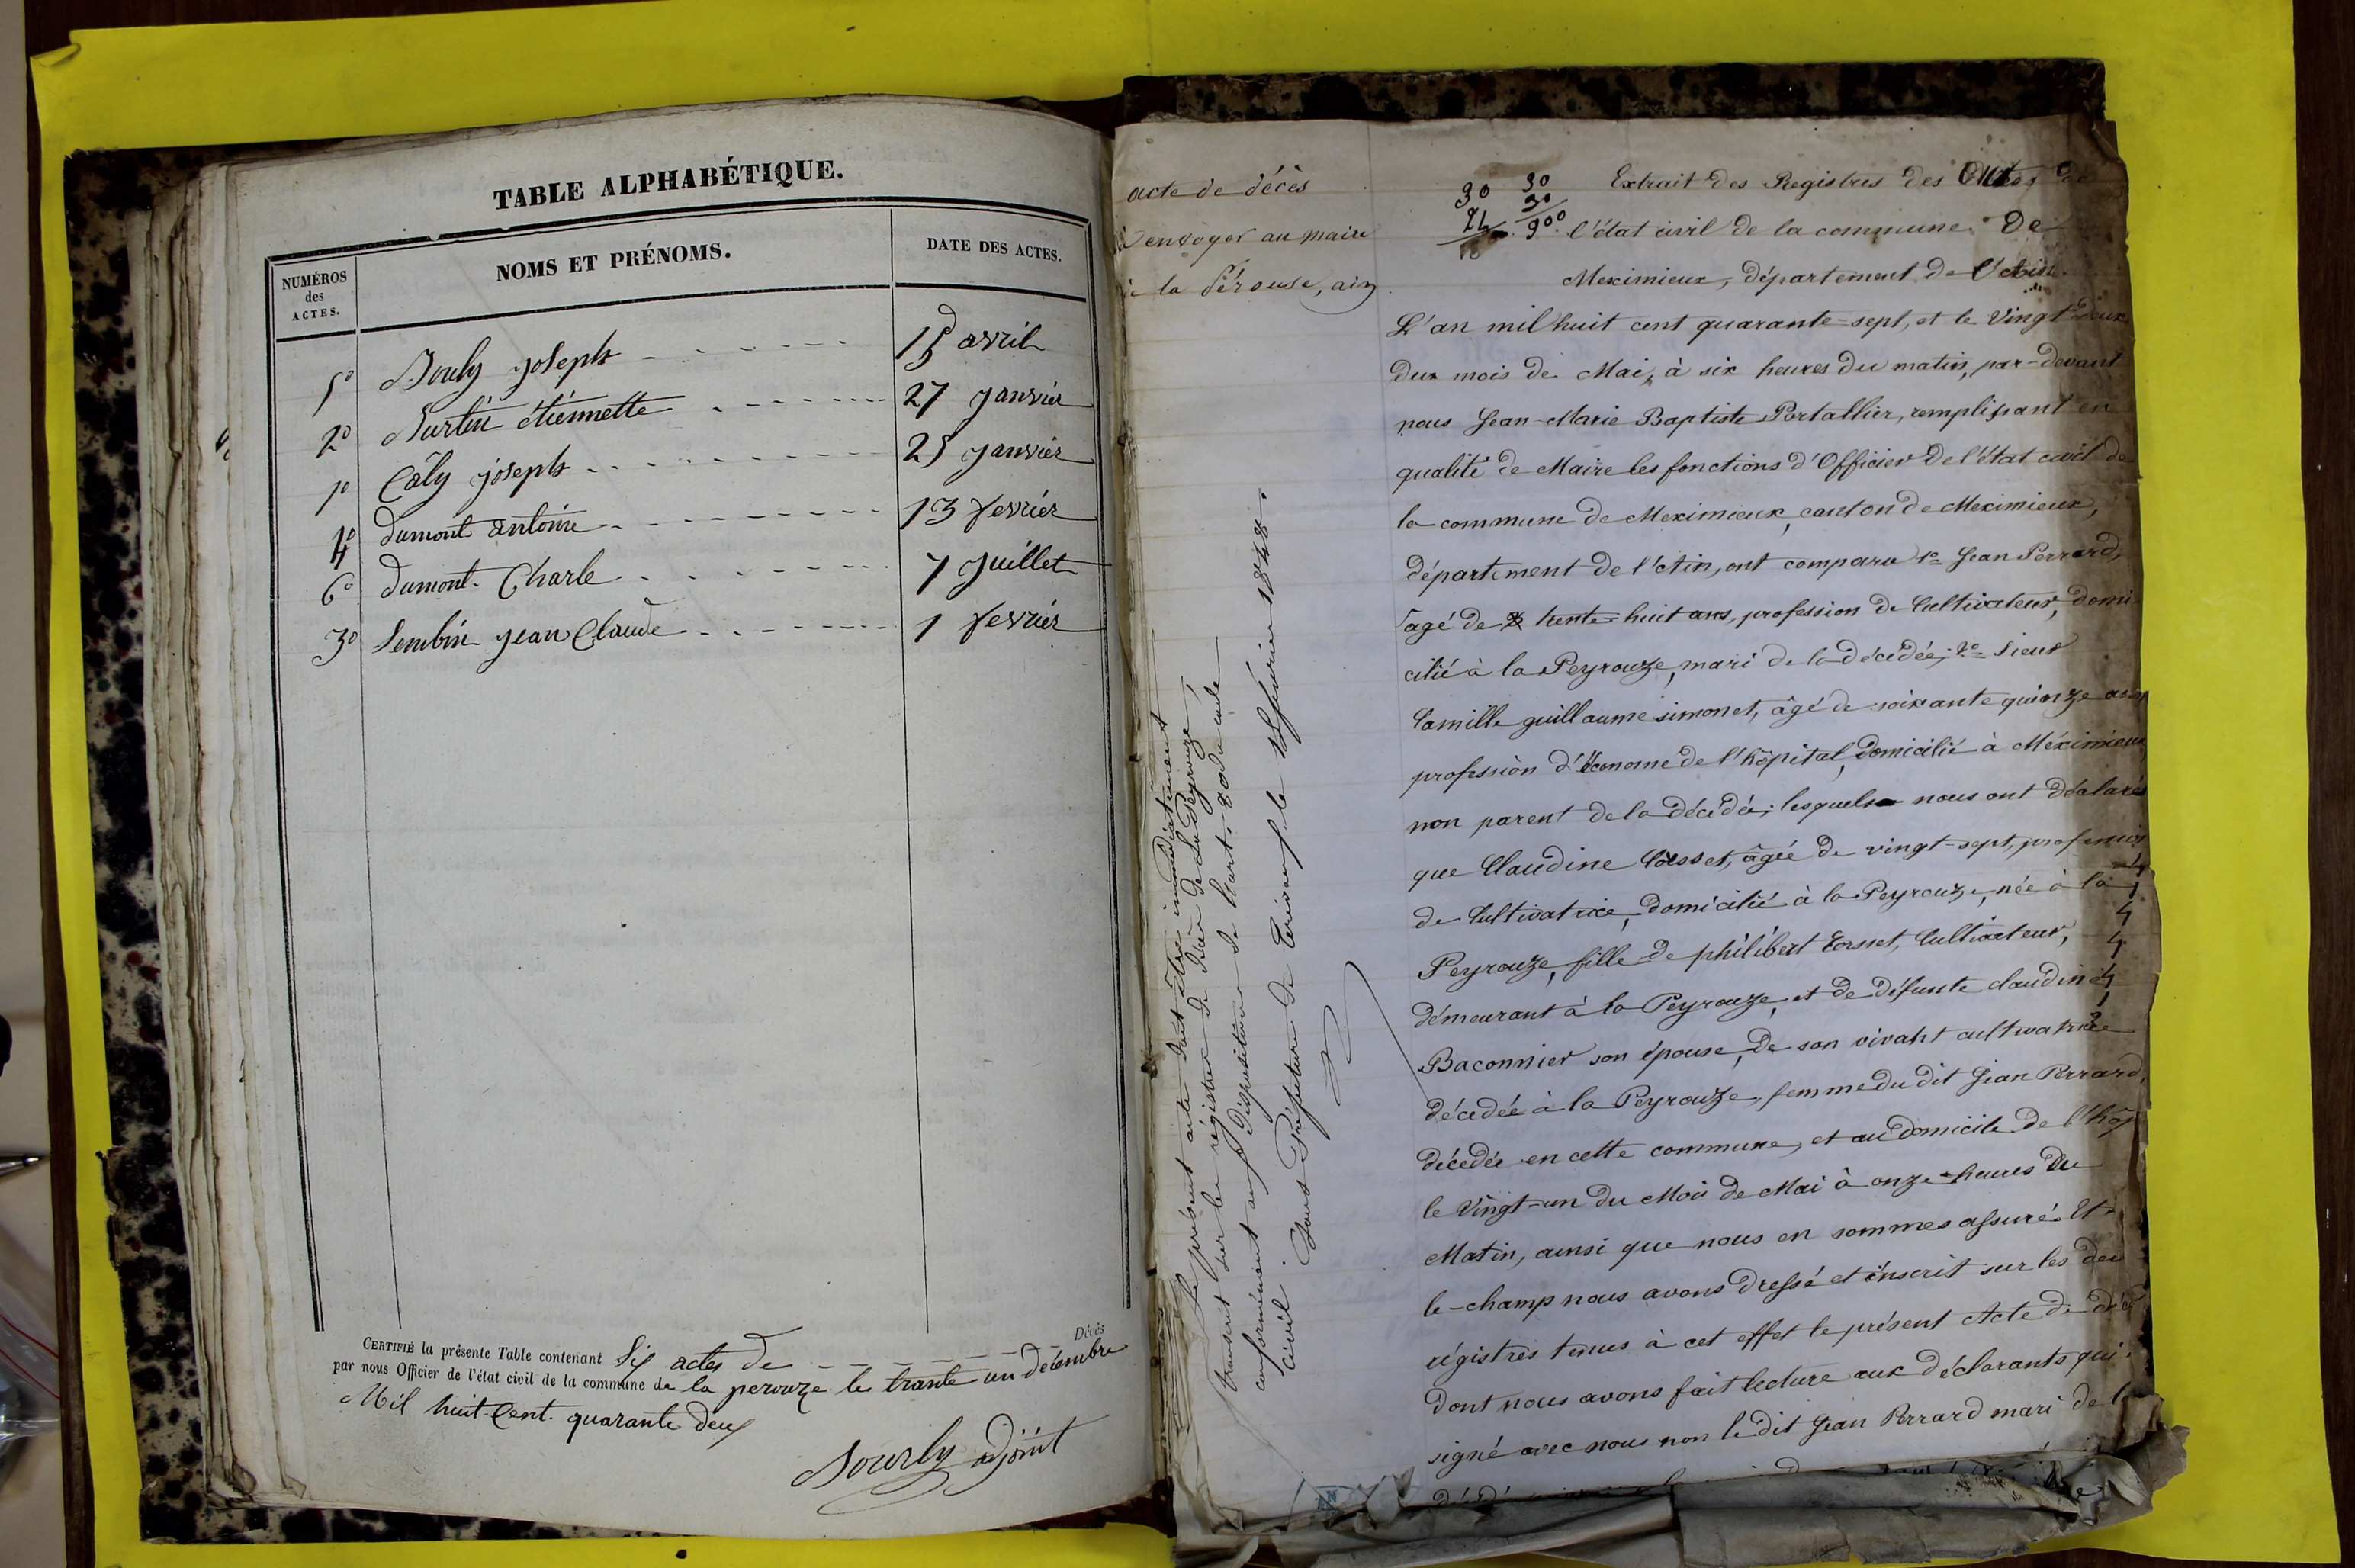 TABLE ALPHABÉTIQUE.
NUMÉROS des ACTES. NOMS ET PRÉNOMS. DATE DES ACTES.
5º Bouly joseph 15 avril
2º Burtin étiennette 27 janvier
1º Câly joseph 25 janvier
4º dumont antoine 13 fevrier
6º dumont Charle 7 juillet
3º Lembin jean Claude 1 fevrier
Décès
CERTIFIÉ la présente Table contenant Six actes de
par nous Officier de l'état civil de la commune de la perouze le trante un décembre
Mil huit Cent. quarante deux
Bourly adjoint
acte de décès
envoyer au maire
à la Pérouse, ain
30 30
30
900
Extrait des Registres des Actes de
l'état civil de la commune De
Meximieux, département de l'Ain.
L'an mil huit cent quarante-sept, et le Vingt deux
du mois de Mai, à six heures du matin, par-devant
nous Jean-Marie Baptiste Portallier, remplissant en
qualité de Maire les fonctions d'Officier de l'état civil de
la commune de Meximieux, canton de Meximieux,
département de l'Ain, ont comparu 1º Jean Perrard,
âgé de trente-huit ans, profession de Cultivateur, domi
cilié à la Peyrouze, mari de la décédée; 2º Sieur
Camille guillaume simonet, âgé de soixante quinze ans
profession d'économe de l'hôpital, domicilié à Méximieux
non parent de la décédée; lesquels nous ont déclaré
que Claudine Cosset, âgée de vingt-sept, profession
de Cultivatrice, domicilié à la Peyrouze, née à la
Peyrouze, fille de philibert Cosset, Cultivateur,
démeurant à la Peyrouze, et de défunte claudine
Baconnier son épouse, de son vivant cultivatrice
décédée à la Peyrouze, femme du dit Jean Perrard,
décédée en cette commune, et au domicile de l'hôp
le Vingt-un du Mois de Mai à onze heures du
Matin, ainsi que nous en sommes assuré. Et
le-champ nous avons dressé et inscrit sur les deu
régistres tenus à cet effet le présent Acte de déc
dont nous avons fait lecture aux déclarants qui
signé avec nous non le dit Jean Perrard mari de la
Le présent acte doit être immédiatement
transcrit sur le régistre de décès de La Peyrouze,
conformément aux dispositions de l'art. 80 du code
civil. Sous-Préfecture de Trévoux, le février 1848.